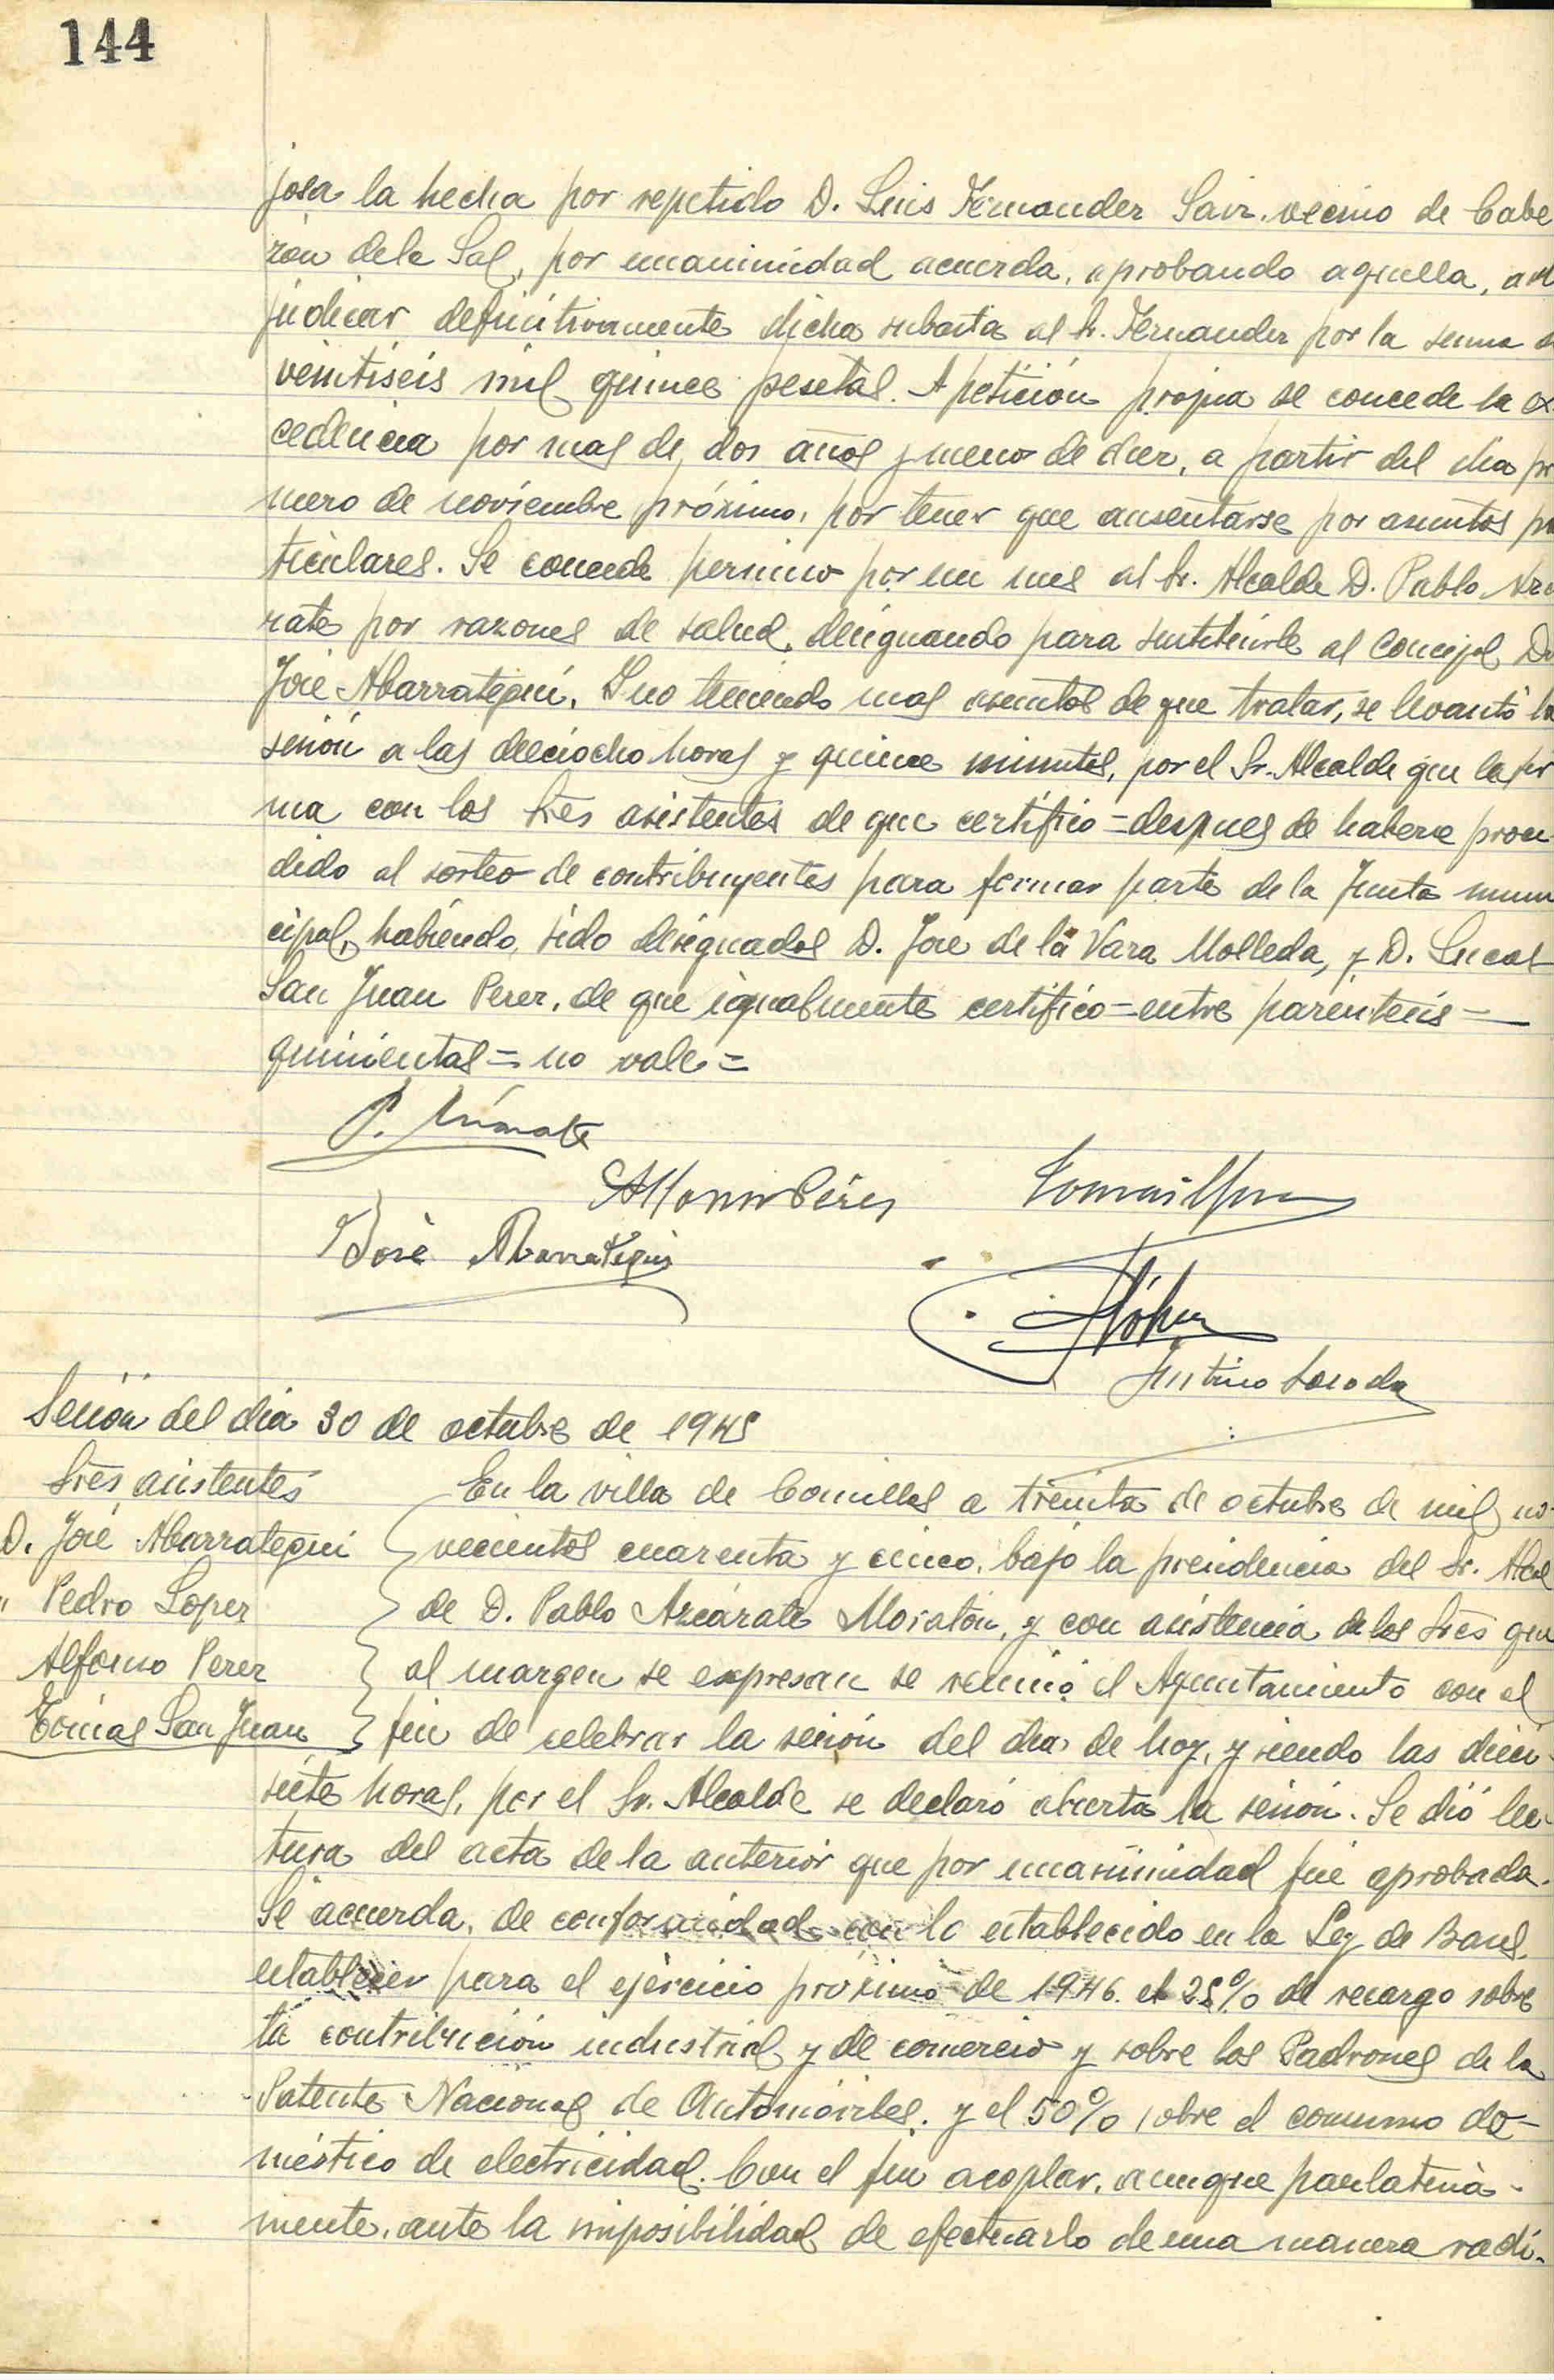 144
josa la hecha por repetido D. Luis Fernandez Sainz vecino de Cabe
zon de la Sal, por unanimidad acuerda, aprobando aquella, ad
judicar definitivamente dicha subasta al Sr. Fernandez por la suma d
veintiseis mil quince pesetas. A petición propia se concede la ex
cedencia por mas de dos años y menos de diez, a partir del dia pr
mero de noviembre próximo, por tener que ausentarse por asuntos pa
ticulares. Se concede permiso por un mes al Sr. Alcalde D. Pablo Azcá
rate por razones de salud, designando para sustituirle al Concejal Dn
José Abarrategui. Y no teniendo mas asuntos de que tratar, se levantó la
sesión a las dieciocho horas y quince minutos, por el Sr. Alcalde que la fir
ma con los Sres asistentes de que certifico = despues de haberse proce
dido al sorteo de contribuyentes para formar parte de la Junta muni
cipal, habiendo sido designados D. Jose de la Vara Molleda, y D. Lucas
San Juan Perez, de que igualmente certifico = entre paréntesis =
quinientas = no vale =
P. Azcárate
Alfonso Pérez
José Abarrategui
Justino Losada
Sesión del dia 30 de octubre de 1945
Sres asistentes
D. José Abarrategui
" Pedro Lopez
Alfonso Perez
Tomas San Juan
En la villa de Comillas a treinta de octubre de mil no-
vecientos cuarenta y cinco, bajo la presidencia del Sr. Alcal
de D. Pablo Azcárate Moratón, y con asistencia de los Sres que
al margen se expresan se reunió el Ayuntamiento con el
fin de celebrar la sesión del dia de hoy, y siendo las dieci-
siete horas, por el Sr. Alcalde se declaró abierta la sesión. Se dió lec-
tura del acta de la anterior que por unanimidad fué aprobada.
Se acuerda, de conformidad con lo establecido en la Ley de Bases,
establecer para el ejercicio próximo de 1946. el 25% de recargo sobre
la contribución industrial y de comercio y sobre los Padrones de la
Patente Nacional de Automóviles, y el 50% sobre el consumo do-
méstico de electricidad. Con el fin acoplar, aunque paulatina-
mente, ante la imposibilidad de efectuarlo de una manera radi-